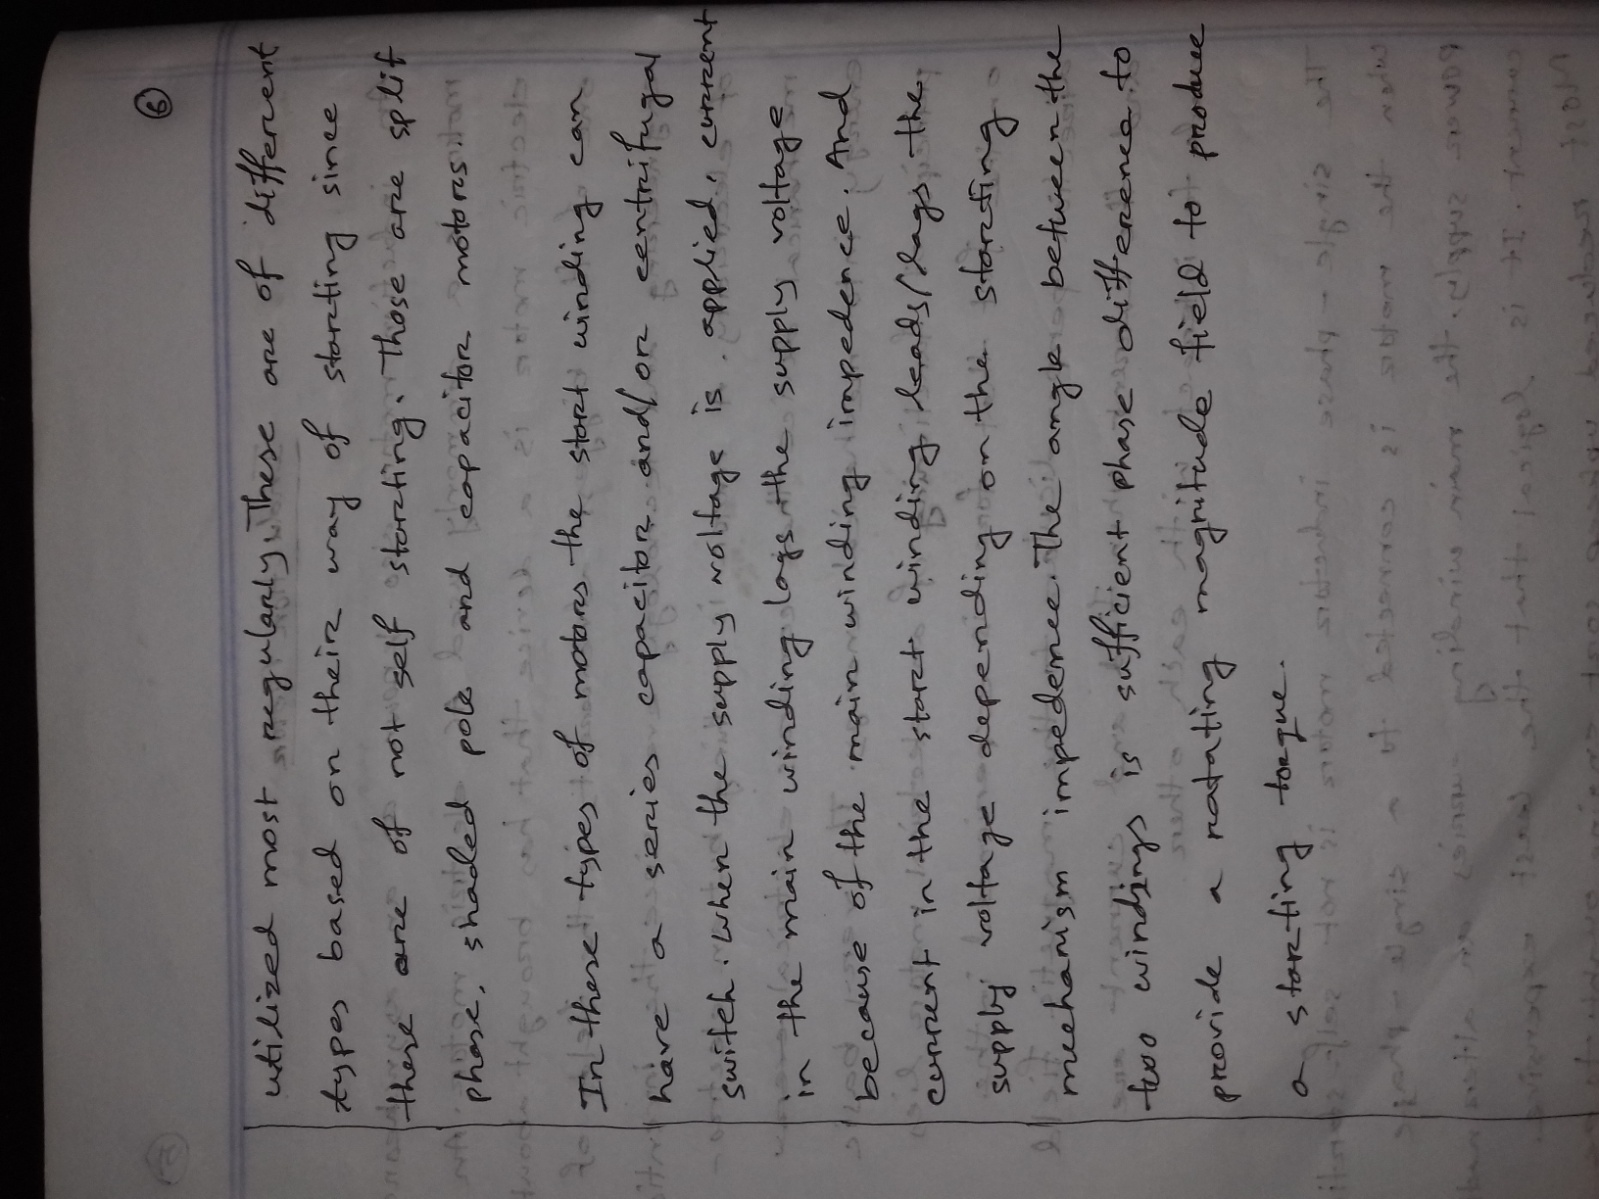 6
utilized most regularly. These are of different
types based on their way of starting since
these are of not self starting. Those are split
phase, shaded pole and capacitor motors.
In these types of motors the start winding can
have a series capacitor and/or centrifugal
switch. when the supply voltage is applied, current
in the main winding lags the supply voltage
because of the main winding impedence. And
current in the start winding leads/lags the
supply voltage depending on the starting
mechanism impedence. The angle between the
two windings is sufficient phase difference to
provide a rotating magnitude field to produce
a starting torque.